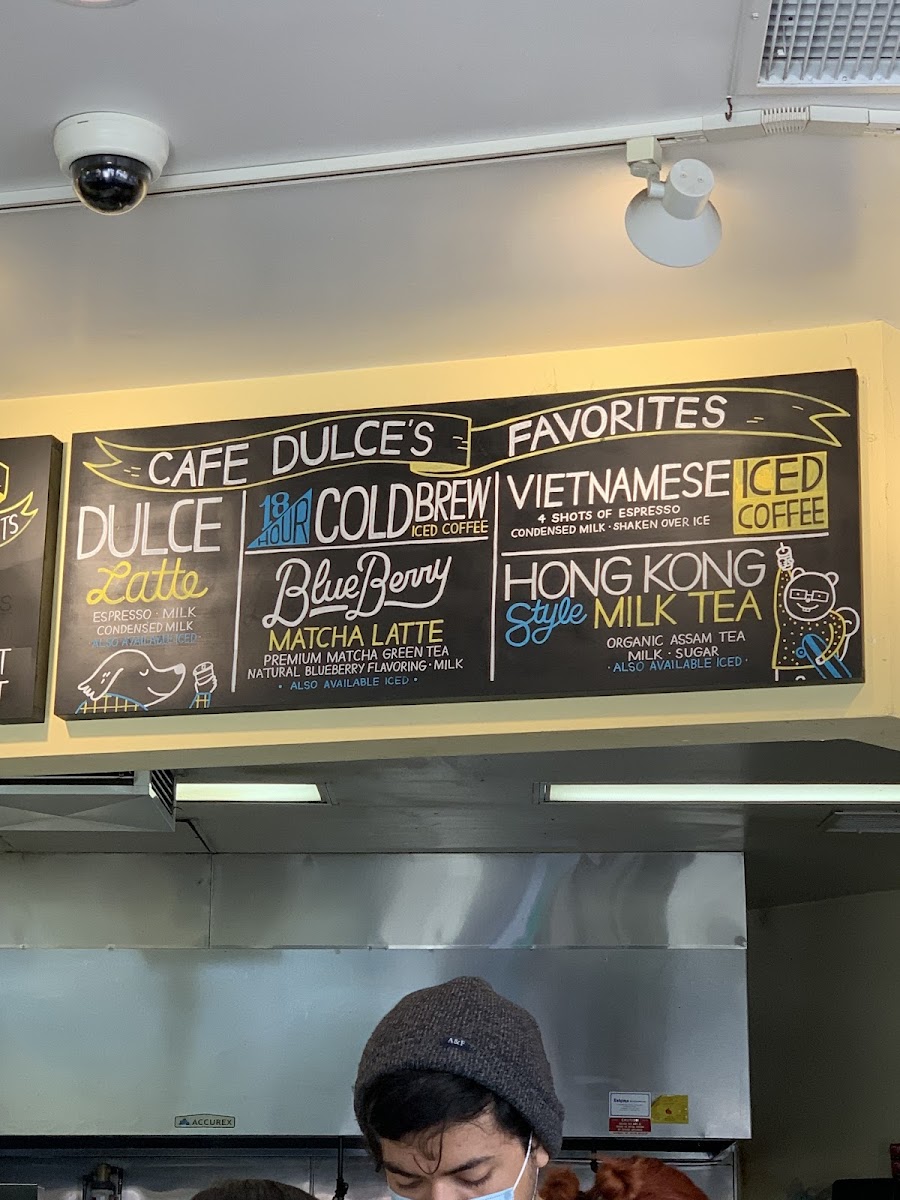 CAFE DULCE'S FAVORITES
DULCE
Latte
ESPRESSO · MILK
CONDENSED MILK
· ALSO AVAILABLE ICED ·
18 HOUR COLD BREW
ICED COFFEE
BlueBerry
MATCHA LATTE
PREMIUM MATCHA GREEN TEA
NATURAL BLUEBERRY FLAVORING · MILK
· ALSO AVAILABLE ICED ·
VIETNAMESE ICED COFFEE
4 SHOTS OF ESPRESSO
CONDENSED MILK · SHAKEN OVER ICE
HONG KONG
Style MILK TEA
ORGANIC ASSAM TEA
MILK · SUGAR
· ALSO AVAILABLE ICED ·
A&F
ACCUREX